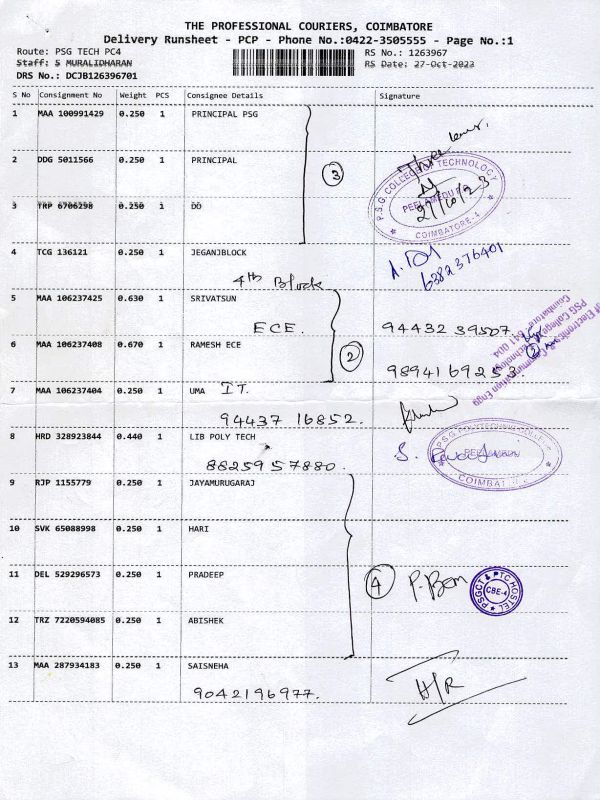 THE PROFESSIONAL COURIERS, COIMBATORE
Delivery Runsheet - PCP - Phone No.:0422-3505555 - Page No.:1
Route: PSG TECH PC4
RS No.: 1263967
Staff: S MURALIDHARAN
RS Date: 27-Oct-2023
DRS No.: DCJB126396701
S No Consignment No Weight PCS Consignee Details Signature
1 MAA 100991429 0.250 1 PRINCIPAL PSG
Three
2 DDG 5011566 0.250 1 PRINCIPAL
3
P.S.G. COLLEGE OF TECHNOLOGY
PEELAMEDU
27/10/23
COIMBATORE-4
3 TRP 6706298 0.250 1 DD
4 TCG 136121 0.250 1 JEGANJBLOCK
6382376401
4th Block
5 MAA 106237425 0.630 1 SRIVATSUN
ECE.
94432 39507
2
6 MAA 106237408 0.670 1 RAMESH ECE
9894169253
PSG College of Technology
Coimbatore 641 004
7 MAA 106237404 0.250 1 UMA I T.
94437 16852.
8 HRD 328923844 0.440 1 LIB POLY TECH
8825957880.
COIMBATORE
9 RJP 1155779 0.250 1 JAYAMURUGARAJ
10 SVK 65088998 0.250 1 HARI
11 DEL 529296573 0.250 1 PRADEEP
4
PSGCT & PTC HOSTEL
CBE-4
12 TRZ 7220594085 0.250 1 ABISHEK
13 MAA 287934183 0.250 1 SAISNEHA
9042196977.
H/R